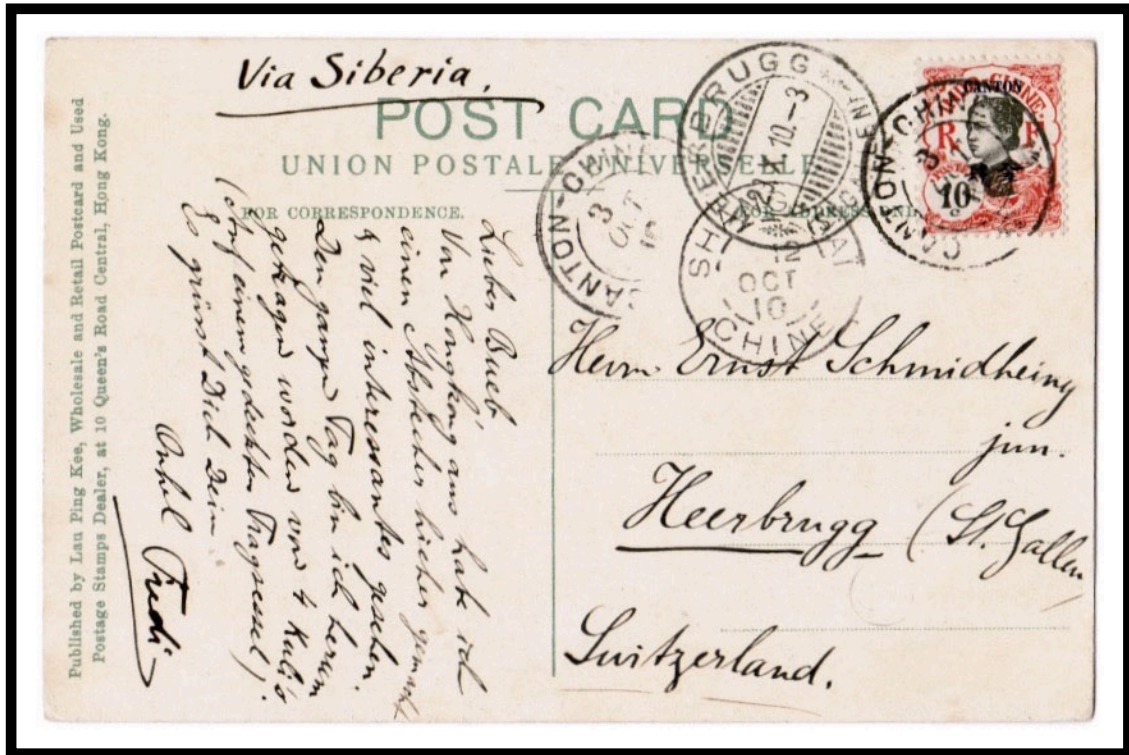 Via Siberia.
POST CARD
UNION POSTALE UNIVERSELLE
FOR CORRESPONDENCE.
FOR ADDRESS
Published by Lau Ping Kee, Wholesale and Retail Postcard and Used
Postage Stamps Dealer, at 10 Queen's Road Central, Hong Kong.
Lieber Bueb,
Von Hongkong aus habe ich
einen Abstecher hieher gemacht
& viel interessantes gesehen.
Den ganzen Tag bin ich herum
getragen worden von 4 Kuli's
(Auf einem gedeckten Tragsessel).
Es grüsst Dich Dein
Onkel Fredi
CANTON-CHINE
3
OCT
10
HEERBRUGG
23.X.10.-3
SHANG-HAI
12
OCT
10
CHINE
CANTON
R F
10
CANTON-CHINE
3
Herrn Ernst Schmidheiny
jun.
Heerbrugg (St. Gallen
Switzerland.